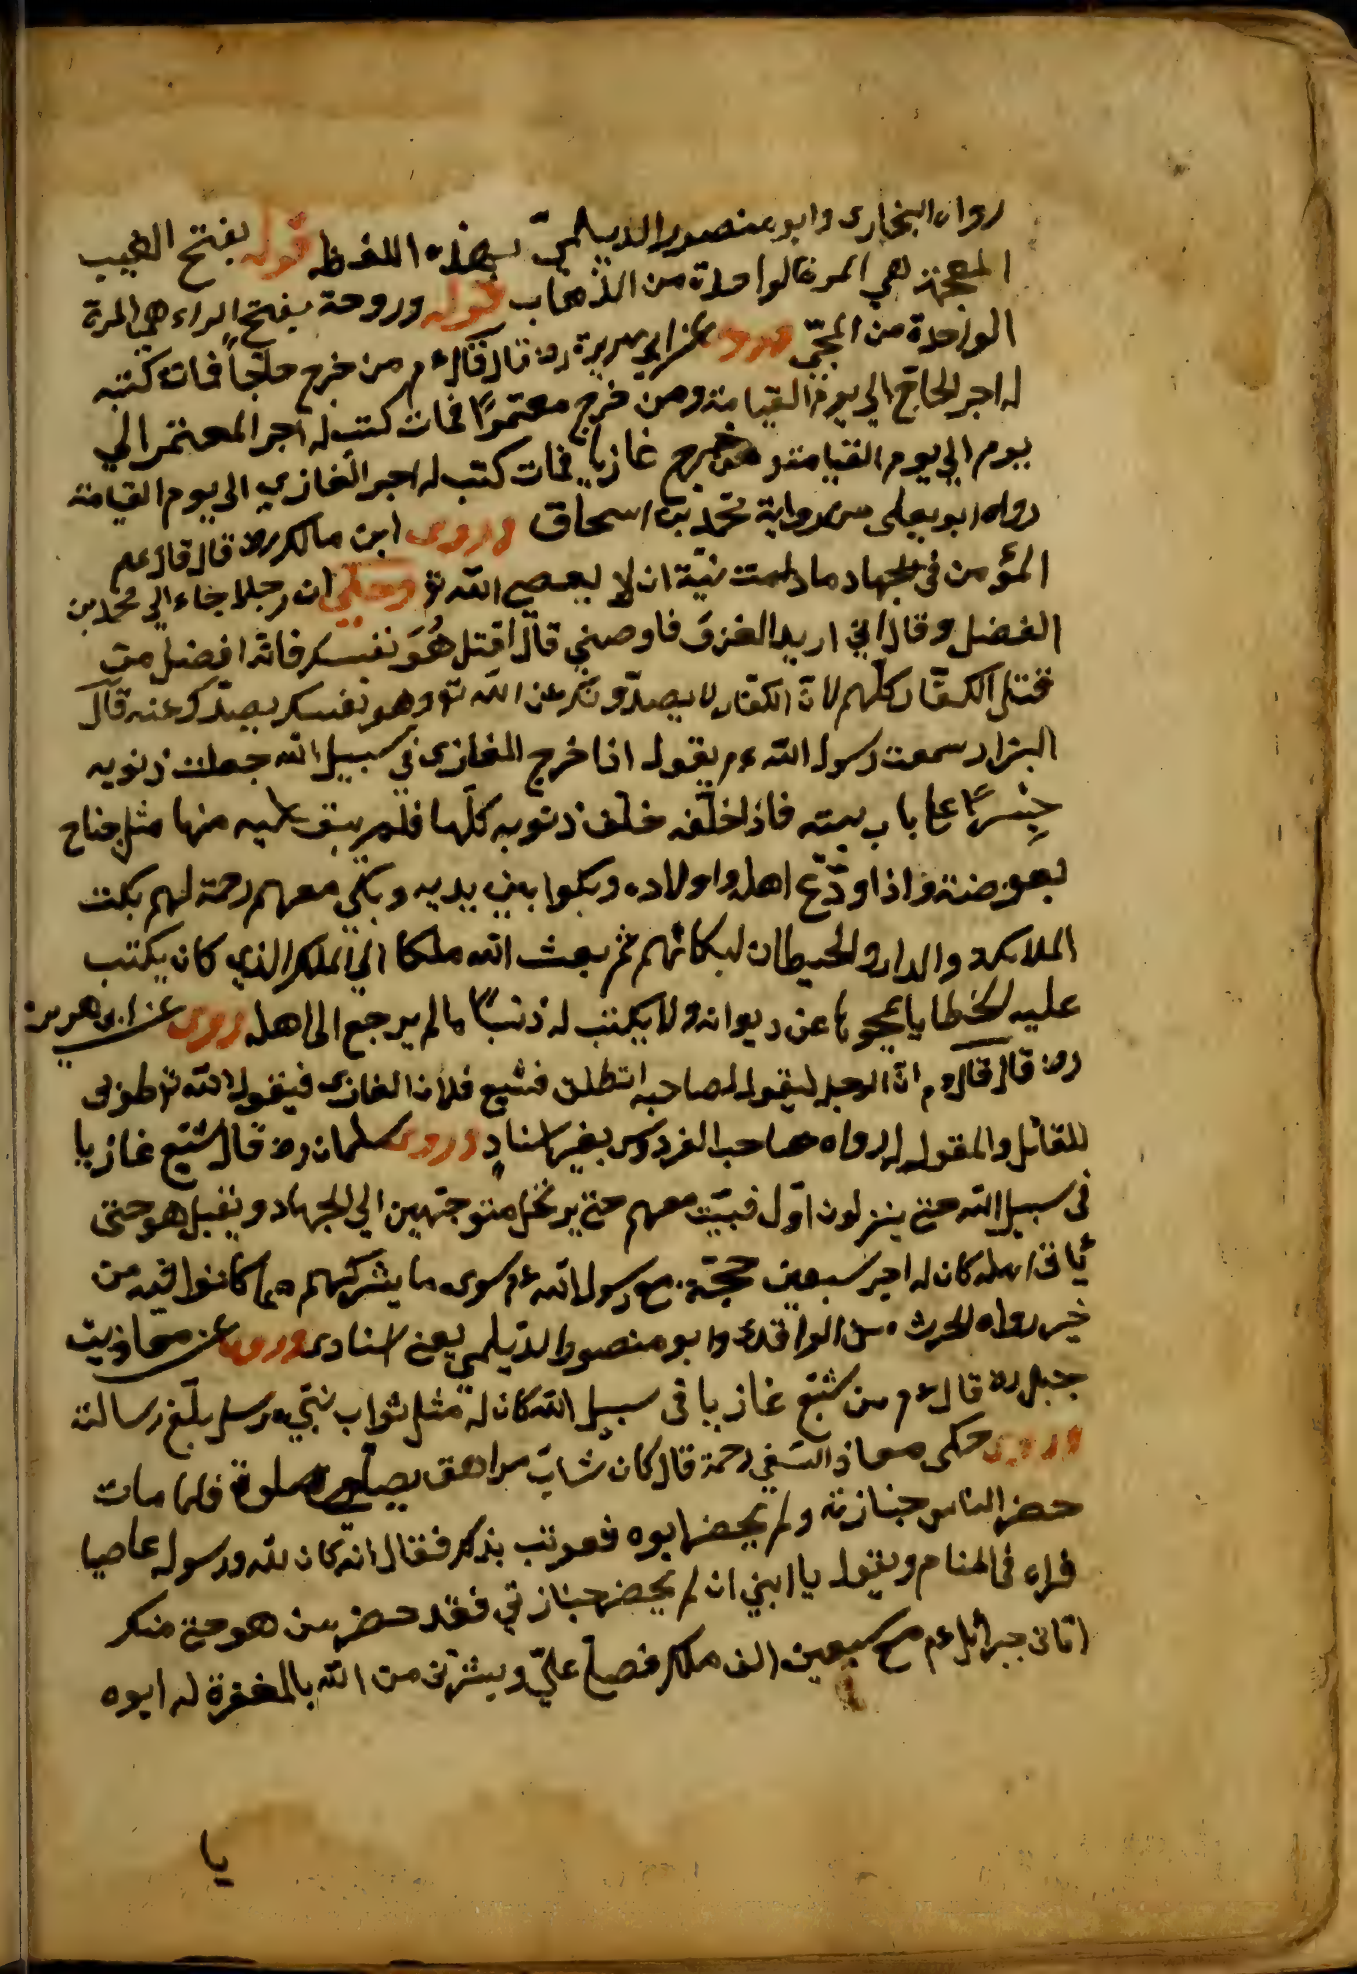 رواه البخارى وابو منصور الديلمىّ بهذه اللفظ قوله بفتح الغيب
المعجمة هي المرة الواحدة من الذهاب قوله وروحة بفتح الراء هي المرة
الواحدة من المجىّ وروى عن ابي هريرة رض قال قال عم من خرج حاجّاً فمات كتب
له اجر الحاج الي يوم القيامة ومن خرج معتمرًا فمات كتب له اجر المعتمر الي
يوم الي يوم القيامة ومن خرج غازيا فمات كتب له اجر الغازي الى يوم القيامة
رواه ابو يعلى من رواية محمّد بن اسحاق وروى ابن مالك رض قال قال عم
المؤمن في الجهاد ما دامت نيّة ان لا يعصي الله تع وحكي ان رجلا جاء الي محمد بن
الفضل وقال اني اريد الغزو فاوصني قال اقتل هُوَ نفسك فانّه افضل من
قتل الكفّار كلّهم لانّ الكفّار لا يصدّونك عن الله تع وهو نفسك يصدّك عنه قال
البزار سمعت رسول الله عم يقول اذا خرج الغازى في سبيل الله جعلت ذنوبه
جِسْرًا على باب بيته فاذا خلّفه خلف ذنوبه كلّها فلم يبق عليه منها مثل جناح
بعوضة واذا ودّع اهله واولاده وبكوا بين يديه وبكي معهم رحمة لهم بكت
الملائكة والدار والحيطان لبكائهم ثم بعث الله ملكا الي الملك الذي كان يكتب
عليه الخطايا يمحوها عن ديوانه ولا يكتب له ذنبًا ما لم يرجع الى اهله روى عن ابى هريرة
رض قال قال عم انّ الرجل ليقول لصاحبه انطلق فشيع فلانا الغازى فيقول الله تع طوبى
للقائل والمقول له رواه صاحب الفردوس بغير اسنادٍ وروى سلمان رض قال شيّع غازيا
فى سبيل الله حتى ينزلون اوّل فبيّت معهم حتى يرتحل متوجّهين الي الجهاد ويقبل هو حتى
ياتى اهله كان له اجر سبعين حجّة مع رسول الله عم سوى ما يشركهم فيما كانوا فيه من
خير رواه الحرث عن الواقدى وابو منصور الديلمي يعنى اسنادى وروى عن معاذ بن
جبل رض قال عم من شيّع غازيا فى سبيل الله كان له مثل ثواب نبىّ مرسل بلّغ رسالته
وروى حكى معاذ النسفي رحمة قال كان شابّ مراهق يصلّى صلوة فلما مات
حضر الناس جنازته ولم يحضر ابوه فعوتب بذلك فقال انه كان لله ورسوله عاصيا
فراه فى المنام ويقول يا ابني ان لم يحضر جنازتي فقد حضر من هو حق منك
اتانى جبرائل عم مع سبعين الف ملك فصلّ علىّ وبشّرنى من الله بالمغفرة له ابوه
يا